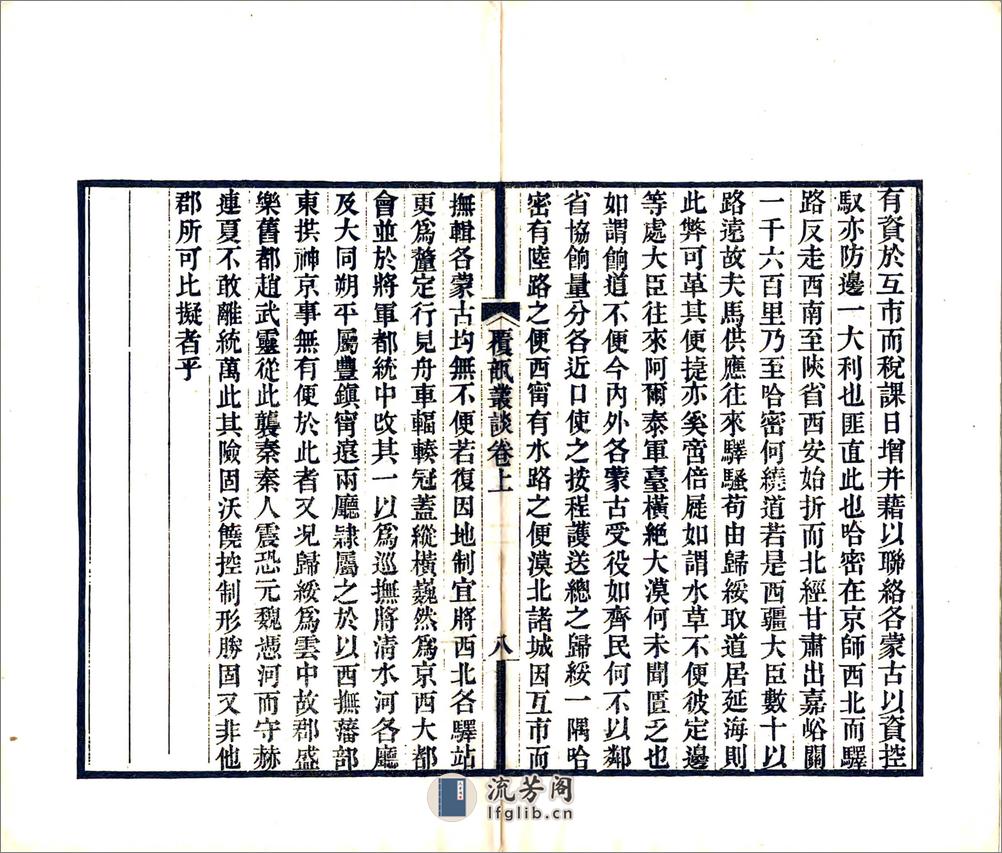 有資於互市而稅課日增并藉以聯絡各蒙古以資控
馭亦防邊一大利也匪直此也哈密在京師西北而驛
路反走西南至陝省西安始折而北經甘肅出嘉峪關
一千六百里乃至哈密何繞道若是西疆大臣數十以
路遠故夫馬供應往來驛騷苟由歸綏取道居延海則
此弊可革其便捷亦奚啻倍屣如謂水草不便彼定邊
等處大臣往來阿爾泰軍臺橫絕大漠何未聞匱乏也
如謂餉道不便今內外各蒙古受役如齊民何不以鄰
省協餉量分各近口使之按程護送總之歸綏一隅哈
密有陸路之便西甯有水路之便漠北諸城因互市而
覆瓿叢談卷上
八
撫輯各蒙古均無不便若復因地制宜將西北各驛站
更爲釐定行見舟車輻輳冠蓋縱橫巍然爲京西大都
會並於將軍都統中改其一以爲巡撫將清水河各廳
及大同朔平屬豐鎮甯遠兩廳隸屬之於以西撫藩部
東拱神京事無有便於此者又况歸綏爲雲中故郡盛
樂舊都趙武靈從此襲秦秦人震恐元魏憑河而守赫
連夏不敢離統萬此其險固沃饒控制形勝固又非他
郡所可比擬者乎
流芳阁
lfglib.cn